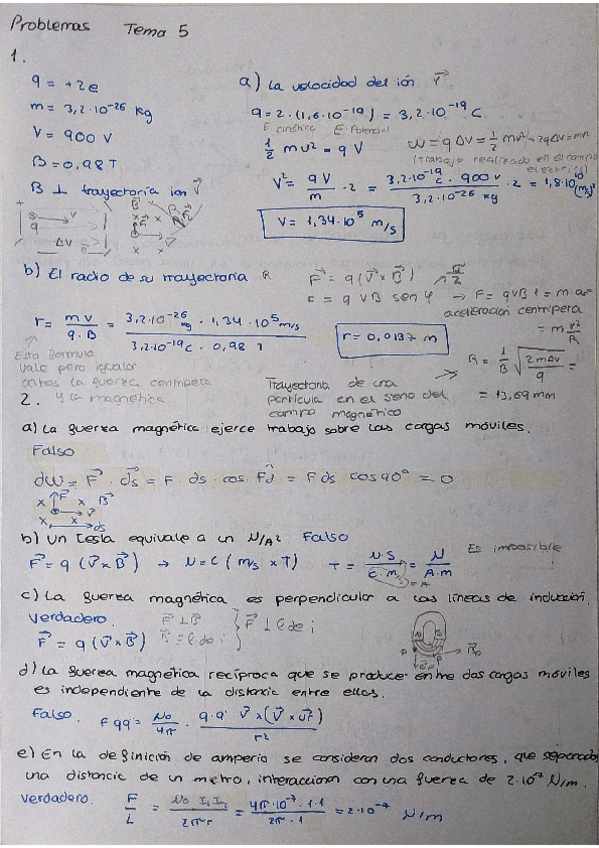 Problemas Tema 5
1.
q = +2e
m = 3,2·10⁻²⁶ kg
V = 900 V
B = 0,98 T
B ⊥ trayectoria ion v⃗
a) La velocidad del ión v⃗
q = 2·(1,6·10⁻¹⁹) = 3,2·10⁻¹⁹ C
E. cinética E. Potencial
½ mv² = q V
W = q ΔV = ½ mv² → 2qΔV = mv²
(trabajo realizado en el campo eléctrico)
V² = qV/m · 2 = 3,2·10⁻¹⁹ C · 900 V / 3,2·10⁻²⁶ kg · 2 = 1,8·10¹⁰ (m/s)²
V = 1,34·10⁵ m/s
b) El radio de su trayectoria R
F⃗ = q (v⃗ × B⃗) π/2
F = q v B sen φ → F = qvB1 = m·ac
aceleración centrípeta
= m v²/R
r = mv/q·B = 3,2·10⁻²⁶ kg · 1,34·10⁵ m/s / 3,2·10⁻¹⁹ C · 0,98 T
r = 0,0137 m
Esta fórmula
vale para igualar
entre la fuerza centrípeta
y la magnética
Trayectoria de una
partícula en el seno del
campo magnético
R = 1/B √(2mΔV/q) =
= 13,69 mm
2.
a) La fuerza magnética ejerce trabajo sobre las cargas móviles.
Falso
dW = F⃗ · ds⃗ = F · ds · cos Fd = F ds cos 90° = 0
b) Un tesla equivale a un N/A² Falso
F⃗ = q (v⃗ × B⃗) → N = C (m/s × T) T = N·s/C·m = N/A·m
Es imposible
c) La fuerza magnética es perpendicular a las líneas de inducción.
Verdadero.
F⃗ = q (v⃗ × B⃗)
F⃗ ⊥ B⃗
B⃗ = l de i
F⃗ ⊥ l de i
d) La fuerza magnética recíproca que se produce entre dos cargas móviles
es independiente de la distancia entre ellas.
Falso. Fqq' = μ₀/4π q·q' v⃗ × (v⃗ × u⃗r)/r²
e) En la definición de amperio se consideran dos conductores, que separados
una distancia de un metro, interaccionan con una fuerza de 2·10⁻⁷ N/m.
Verdadero. F/L = μ₀ I₁ I₂/2πr = 4π·10⁻⁷·1·1/2π·1 = 2·10⁻⁷ N/m